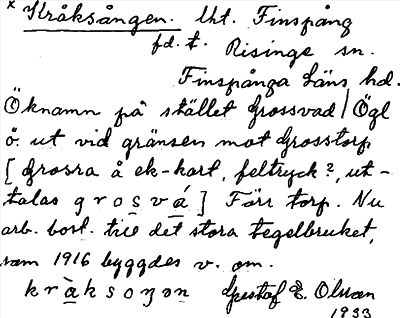 x Kråksången. Utt. Finspång
fd. t. Risinge sn.
Finspånga Läns hd.
Öknamn på stället Grossvad / Ögl
ö. ut vid gränsen mot Grosstorp
[ Grosra å ek-kart, feltryck?, ut-
talas grosvá ] Förr torp. Nu
arb. bost. till det stora tegelbruket,
som 1916 byggdes v. om.
kràksoŋən Gustaf E. Olsson
1933